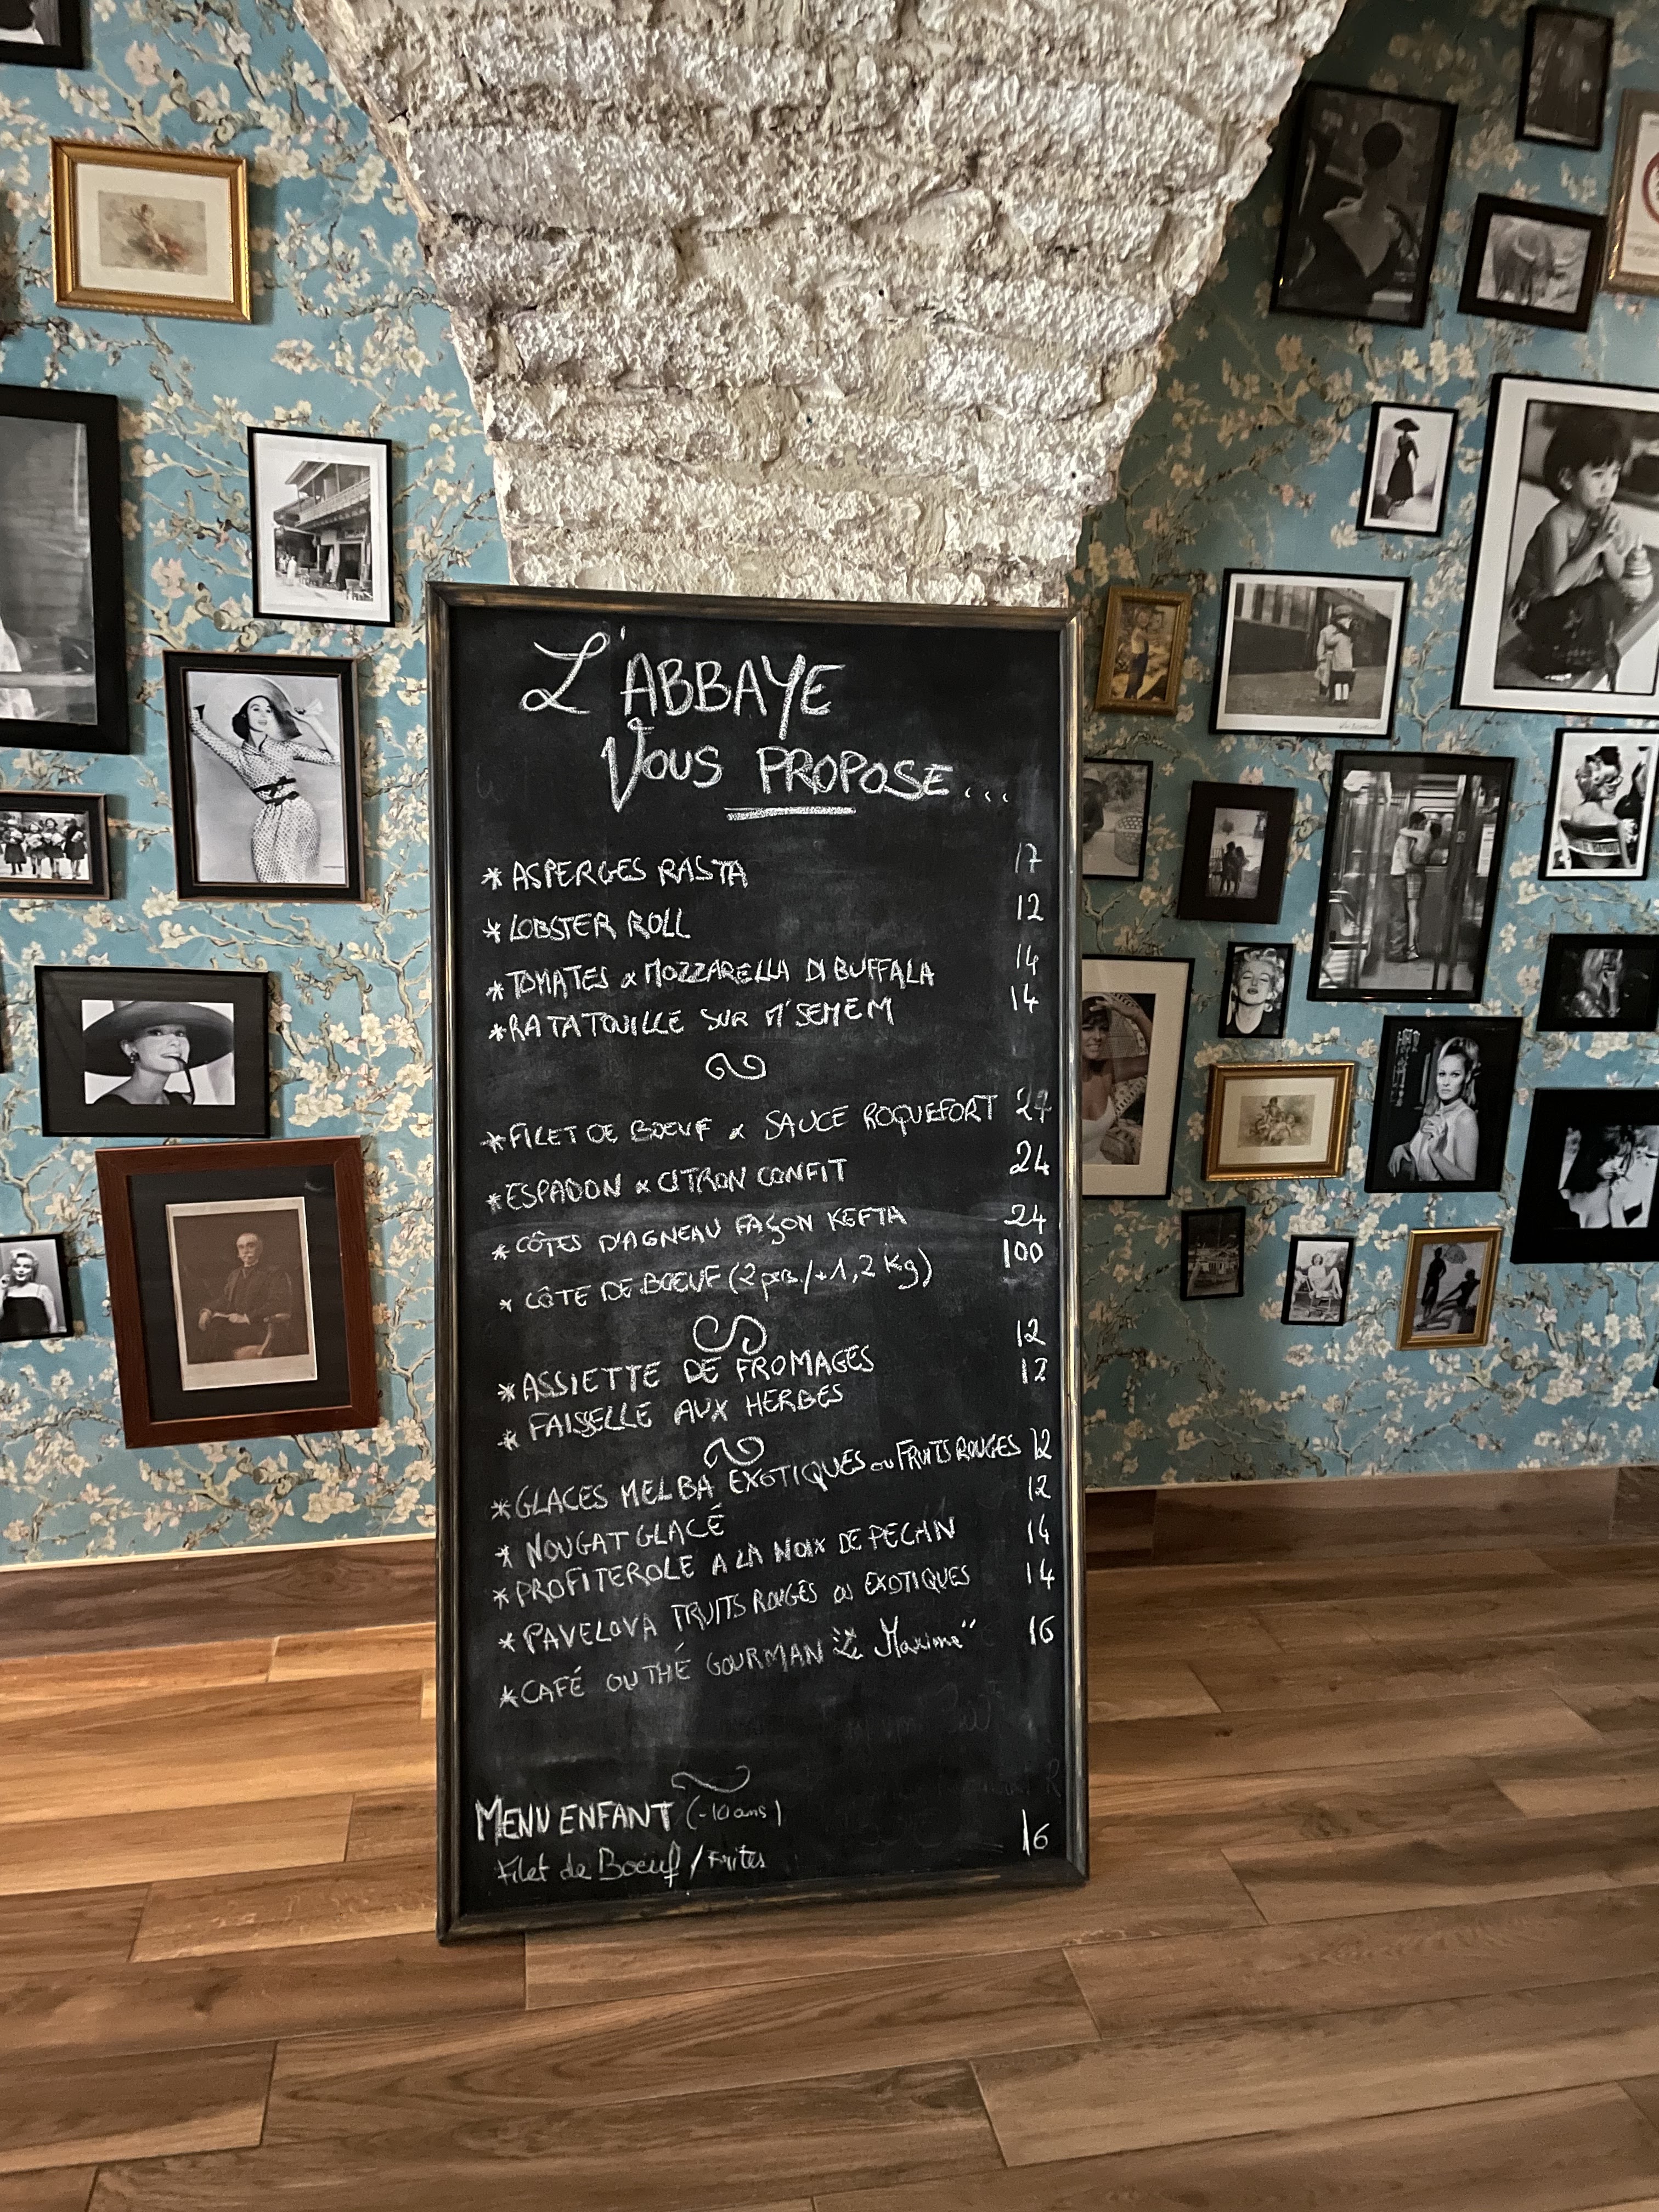 L'ABBAYE
VOUS PROPOSE...
* ASPERGES RASTA 17
* LOBSTER ROLL 12
* TOMATES x MOZZARELLA DI BUFFALA 14
* RATATOUILLE SUR M'SEMEM 14
* FILET DE BOEUF x SAUCE ROQUEFORT
* ESPADON x CITRON CONFIT 24
* CÔTES D'AGNEAU FAÇON KEFTA 24
* CÔTE DE BOEUF (2 pers./+1,2 Kg) 100
* ASSIETTE DE FROMAGES 12
* FAISSELLE AUX HERBES 12
* GLACES MELBA EXOTIQUES ou FRUITS ROUGES 12
* NOUGAT GLACÉ 12
* PROFITEROLE A LA NOIX DE PECAN 14
* PAVELOVA FRUITS ROUGES ou EXOTIQUES 14
* CAFÉ OU THÉ GOURMAN "Le Maxime" 16
MENU ENFANT (-10 ans)
Filet de Boeuf / Frites 16